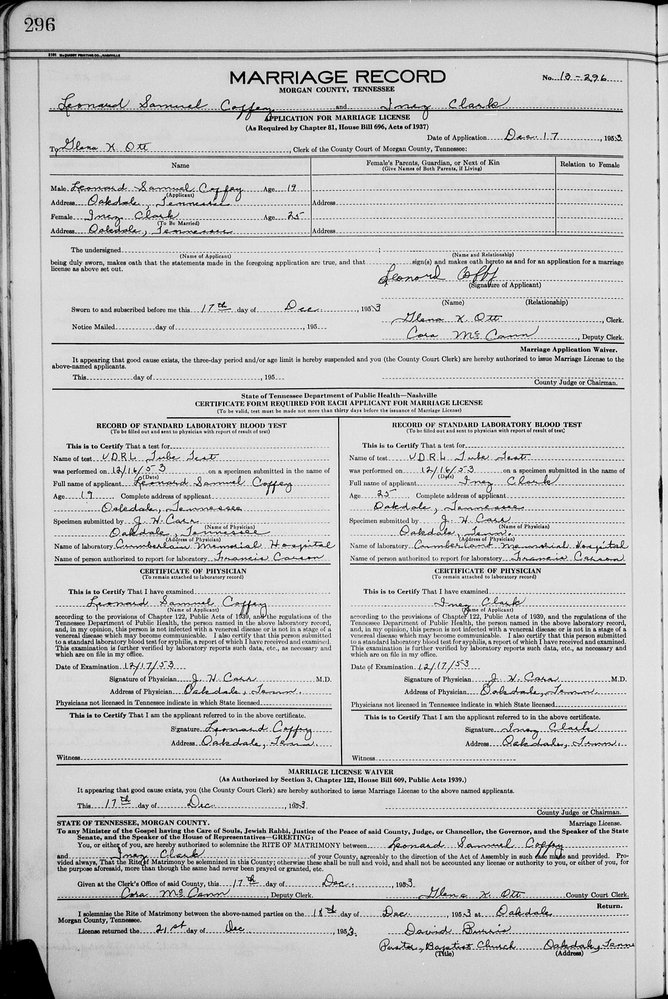 296
MARRIAGE RECORD
No. 18-296
MORGAN COUNTY, TENNESSEE
Leonard Samuel Coffey and Inez Clark
APPLICATION FOR MARRIAGE LICENSE
(As Required by Chapter 81, House Bill 696, Acts of 1937)
Date of Application Dec 17, 1953
To Glena K Ott, Clerk of the County Court of Morgan County, Tennessee:
Name Female's Parents, Guardian, or Next of Kin (Give Names of Both Parents, if Living) Relation to Female
Male Leonard Samuel Coffey Age 19
(Applicant)
Address Oakdale, Tennessee Address
Female Inez Clark Age 25
(To Be Married)
Address Oakdale, Tennessee Address
The undersigned
(Name of Applicant) (Name and Relationship)
being duly sworn, makes oath that the statements made in the foregoing application are true, and that sign(s) and makes oath hereto as and for an application for a marriage
license as above set out.
Leonard
(Signature of Applicant)
Sworn to and subscribed before me this 17th day of Dec 1953 (Name) (Relationship)
Glena K. Ott, Clerk.
Notice Mailed day of , 195 Cora McCann, Deputy Clerk.
Marriage Application Waiver.
It appearing that good cause exists, the three-day period and/or age limit is hereby suspended and you (the County Court Clerk) are hereby authorized to issue Marriage License to the
above-named applicants.
This day of , 195
County Judge or Chairman.
State of Tennessee Department of Public Health—Nashville
CERTIFICATE FORM REQUIRED FOR EACH APPLICANT FOR MARRIAGE LICENSE
(To be valid, test must be made not more than thirty days before the issuance of Marriage License)
RECORD OF STANDARD LABORATORY BLOOD TEST
(To be filled out and sent to physician with report of result of test)
This is to Certify That a test for
Name of test V.D.R.L Tube Test
was performed on 12/16/53 on a specimen submitted in the name of
(Date)
Full name of applicant Leonard Samuel Coffey
Age 19 Complete address of applicant
Oakdale, Tennessee
Specimen submitted by J. H. Carr
(Name of Physician)
Oakdale, Tennessee
(Address of Physician)
Name of laboratory Cumberland Memorial Hospital
Name of person authorized to report for laboratory Francis Carson
CERTIFICATE OF PHYSICIAN
(To remain attached to laboratory record)
This is to Certify That I have examined
Leonard Samuel Coffey
(Name of Applicant)
according to the provisions of Chapter 122, Public Acts of 1939, and the regulations of the
Tennessee Department of Public Health, the person named in the above laboratory record,
and, in my opinion, this person is not infected with a venereal disease or is not in a stage of a
venereal disease which may become communicable. I also certify that this person submitted
to a standard laboratory blood test for syphilis, a report of which I have received and examined.
This examination is further verified by laboratory reports such data, etc., as necessary and
which are on file in my office.
Date of Examination 12/17/53
Signature of Physician J. H. Carr M.D.
Address of Physician Oakdale, Tenn.
Physicians not licensed in Tennessee indicate in which State licensed
This is to Certify That I am the applicant referred to in the above certificate.
Signature Leonard Coffey
Address Oakdale, Tenn
Witness
RECORD OF STANDARD LABORATORY BLOOD TEST
(To be filled out and sent to physician with report of result of test)
This is to Certify That a test for
Name of test V.D.R.L Tube Test
was performed on 12/16/53 on a specimen submitted in the name of
(Date)
Full name of applicant Inez Clark
Age 25 Complete address of applicant
Oakdale, Tennessee
Specimen submitted by J. H. Carr
(Name of Physician)
Oakdale, Tenn.
(Address of Physician)
Name of laboratory Cumberland Memorial Hospital
Name of person authorized to report for laboratory Francis Carson
CERTIFICATE OF PHYSICIAN
(To remain attached to laboratory record)
This is to Certify That I have examined
Inez Clark
(Name of Applicant)
according to the provisions of Chapter 122, Public Acts of 1939, and the regulations of the
Tennessee Department of Public Health, the person named in the above laboratory record,
and, in my opinion, this person is not infected with a venereal disease or is not in a stage of a
venereal disease which may become communicable. I also certify that this person submitted
to a standard laboratory blood test for syphilis, a report of which I have received and examined.
This examination is further verified by laboratory reports such data, etc., as necessary and
which are on file in my office.
Date of Examination 12/17/53
Signature of Physician J. H. Carr M.D.
Address of Physician Oakdale, Tenn
Physicians not licensed in Tennessee indicate in which State licensed
This is to Certify That I am the applicant referred to in the above certificate.
Signature Inez Clark
Address Oakdale, Tenn.
Witness
MARRIAGE LICENSE WAIVER
(As Authorized by Section 3, Chapter 122, House Bill 609, Public Acts 1939.)
It appearing that good cause exists, you (the County Court Clerk) are hereby authorized to issue Marriage License to the above named applicants.
This 17th day of Dec, 1953
County Judge or Chairman.
STATE OF TENNESSEE, MORGAN COUNTY. Marriage License.
To any Minister of the Gospel having the Care of Souls, Jewish Rabbi, Justice of the Peace of said County, Judge, or Chancellor, the Governor, and the Speaker of the State
Senate, and the Speaker of the House of Representatives—GREETING:
You, or either of you, are hereby authorized to solemnize the RITE OF MATRIMONY between Leonard Samuel Coffey
and Inez Clark of your County, agreeably to the direction of the Act of Assembly in such case made and provided. Pro-
vided always, That the Rite of Matrimony be solemnized in this County; otherwise these shall be null and void, and shall not be accounted any license or authority to you, or either of you, for
the purpose aforesaid, more than though the same had never been prayed or granted, etc.
Given at the Clerk's Office of said County, this 17th day of Dec, 1953
Cora McCann, Deputy Clerk. Glena K. Ott County Court Clerk.
Return.
I solemnise the Rite of Matrimony between the above-named parties on the 18th day of Dec, 1953 at Oakdale
Morgan County, Tennessee.
License returned the 21st day of Dec, 1953. David Burris
Pastor, Baptist Church Oakdale, Tenne
(Title) (Address)